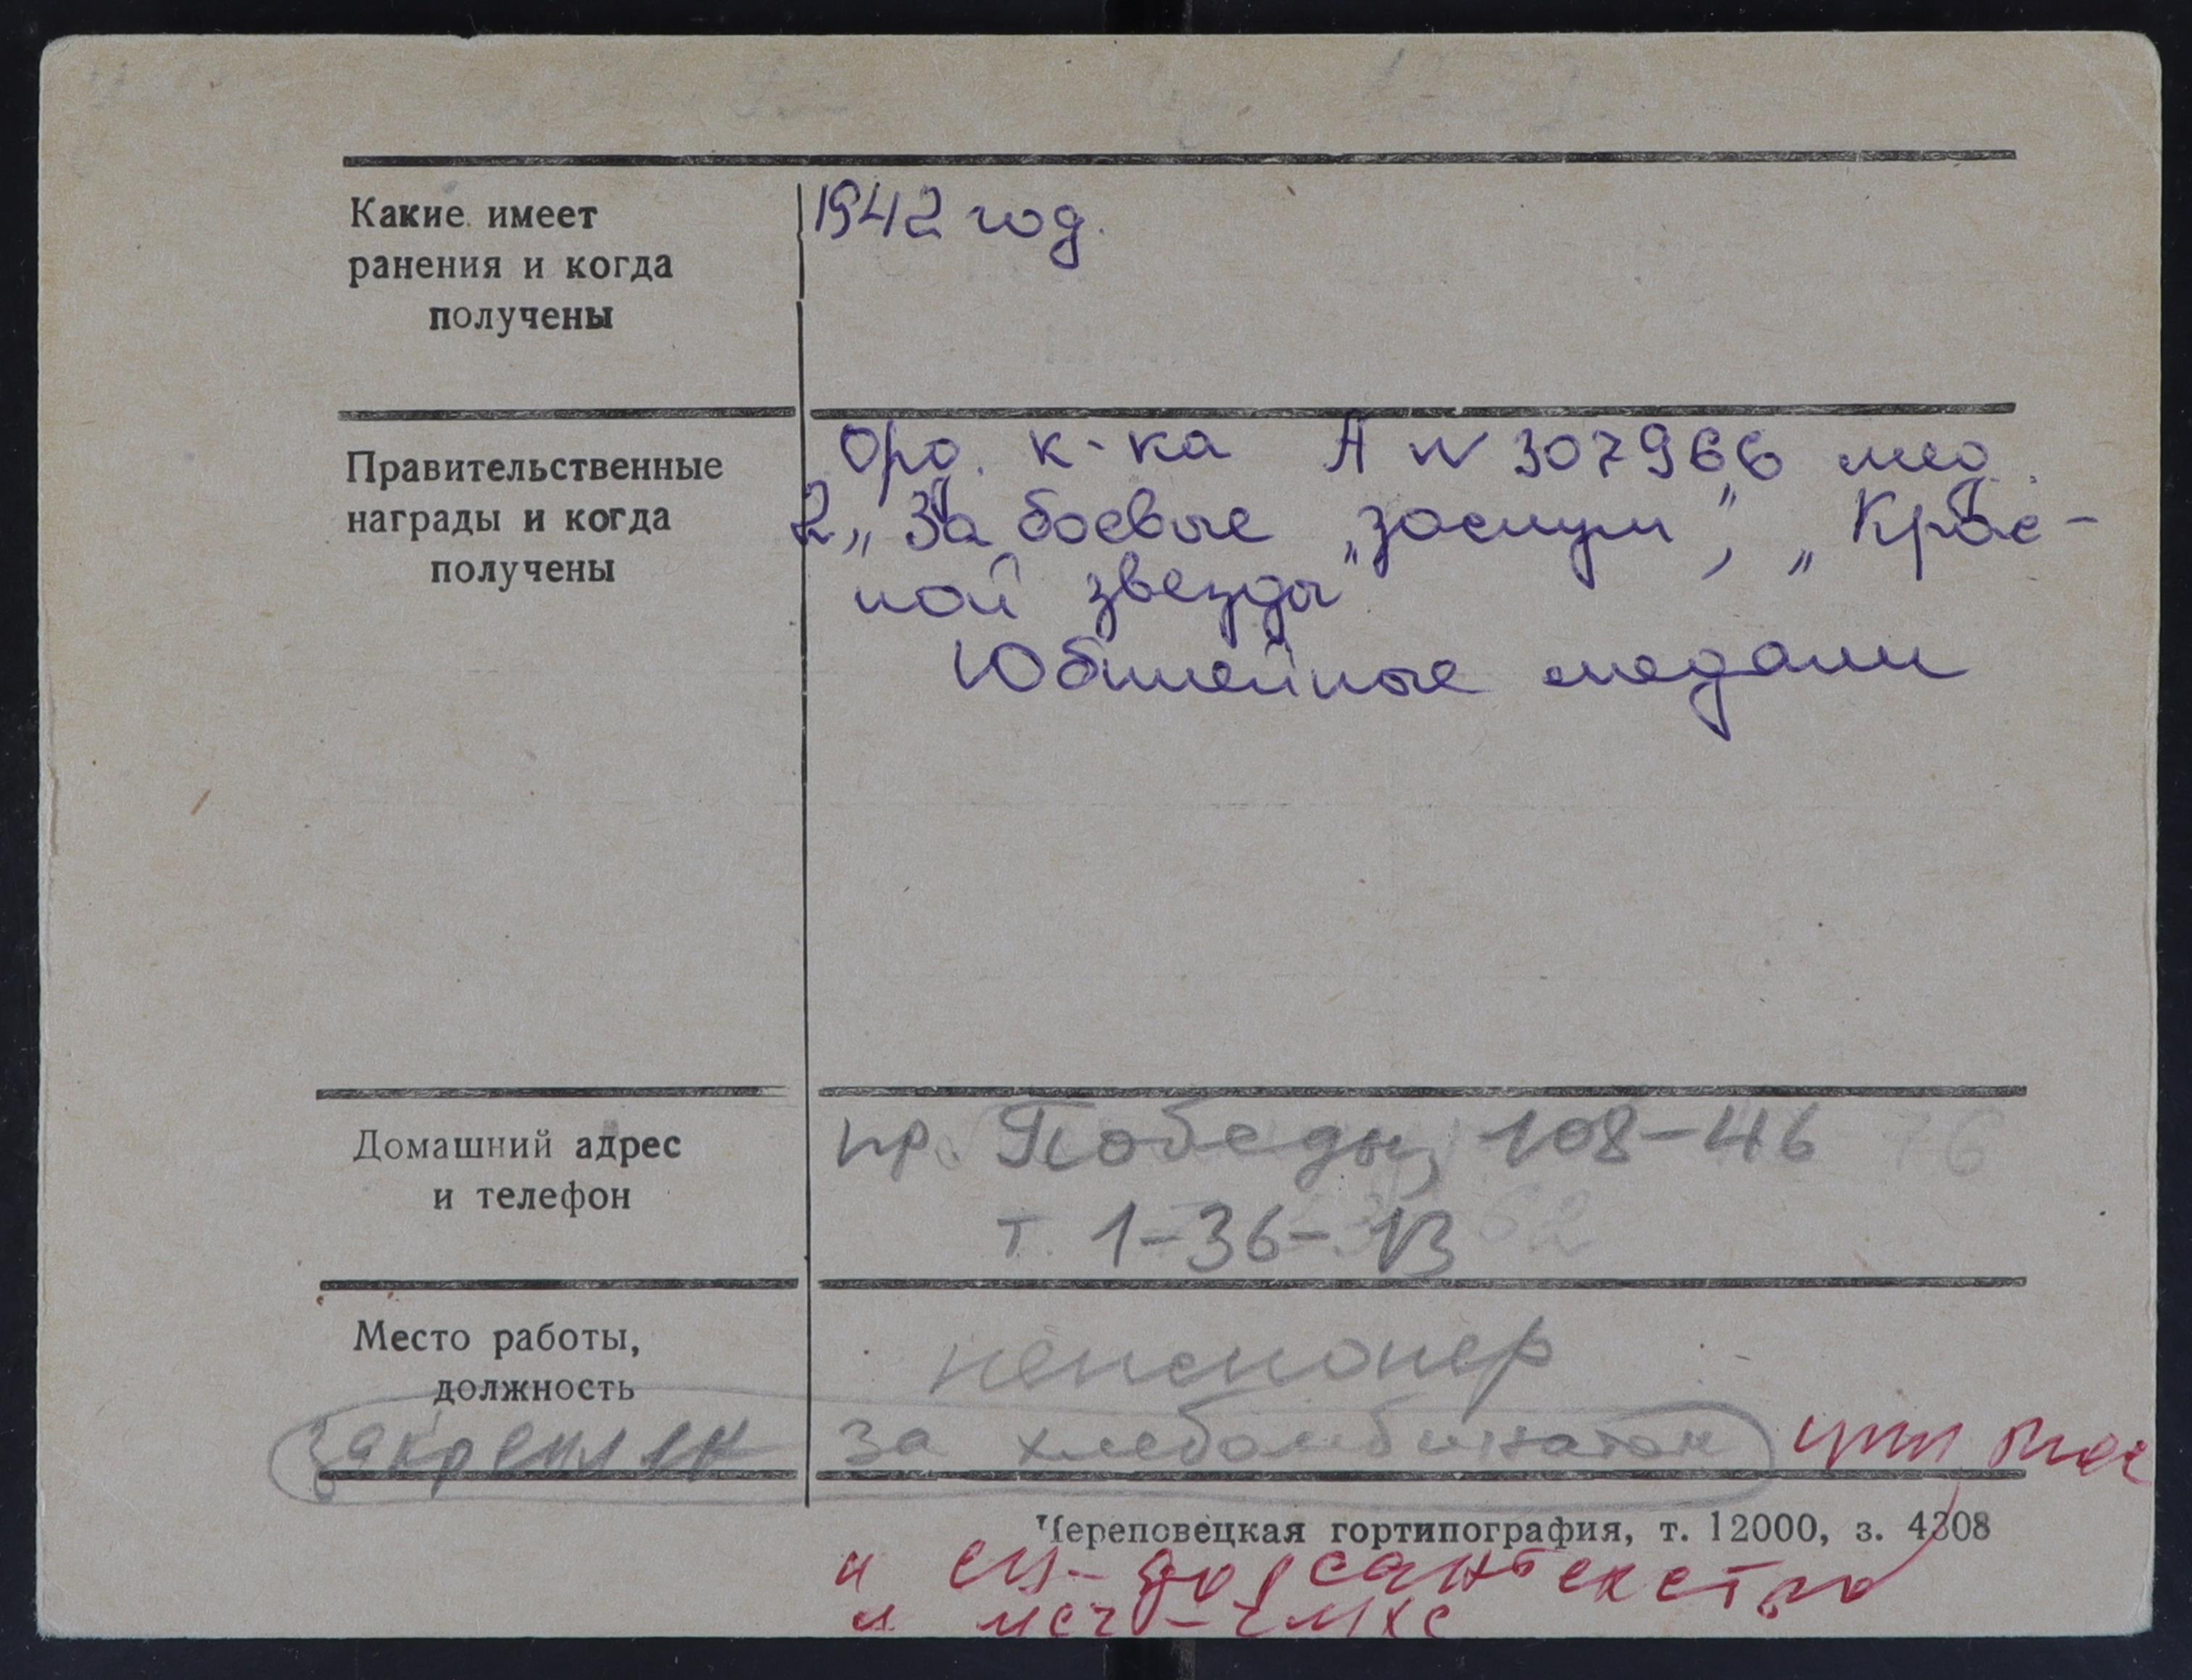 Какие имеет
ранения и когда
получены
1942 год.
Правительственные
награды и когда
получены
Орд. к-ка А № 307966 мед.
2 „За боевые заслуги”, „Крас-
ной звезды”
Юбилейные медали
Домашний адрес
и телефон
пр. Победы, 108-46 76
т. 1-36-13 62
Место работы,
должность
пенсионер
Закреплен за хлебокомбинатом
Череповецкая гортипография, т. 12000, з. 4308
и
и мсч - чмхс